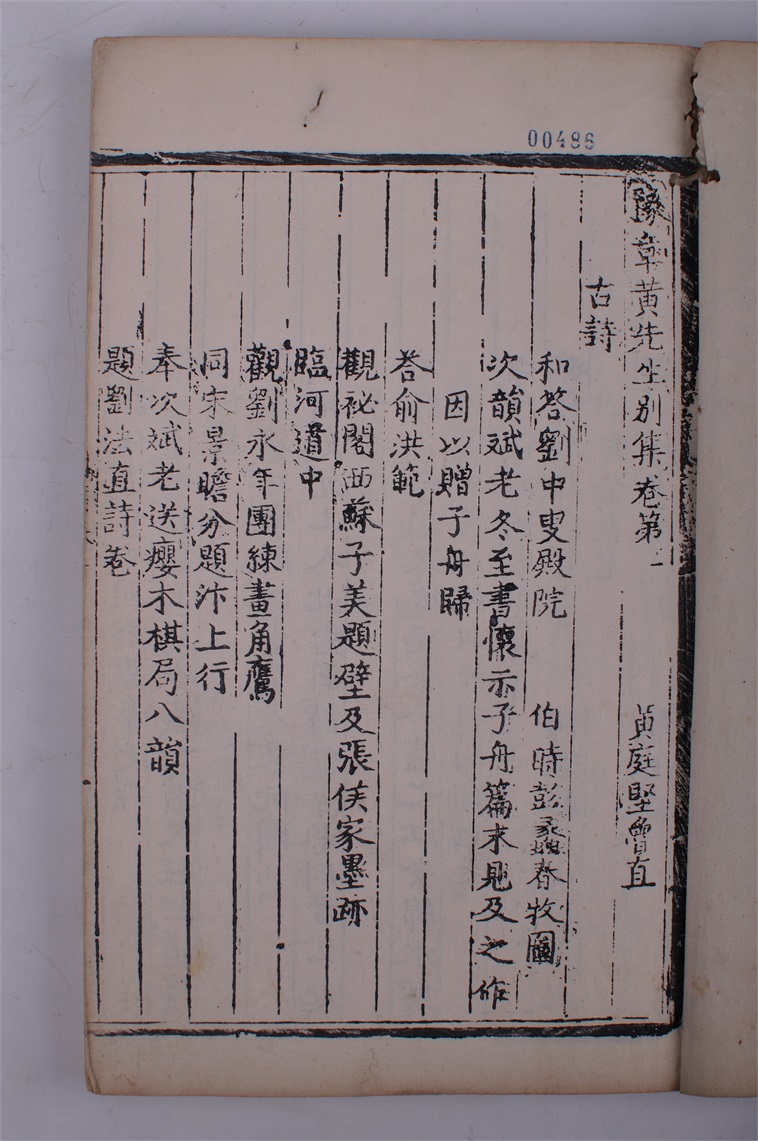 00486
豫章黃先生別集卷第一
黃庭堅魯直
古詩
和荅劉中叟殿院 伯時彭蠡春牧圖
次韻斌老冬至書懷示子舟篇末見及之作
因以贈子舟歸
荅俞洪範
觀祕閣西蘇子美題壁及張侯家墨跡
臨河道中
觀劉永年團練畫角鷹
同宋景瞻分題汴上行
奉次斌老送癭木棋局八韻
題劉法直詩卷